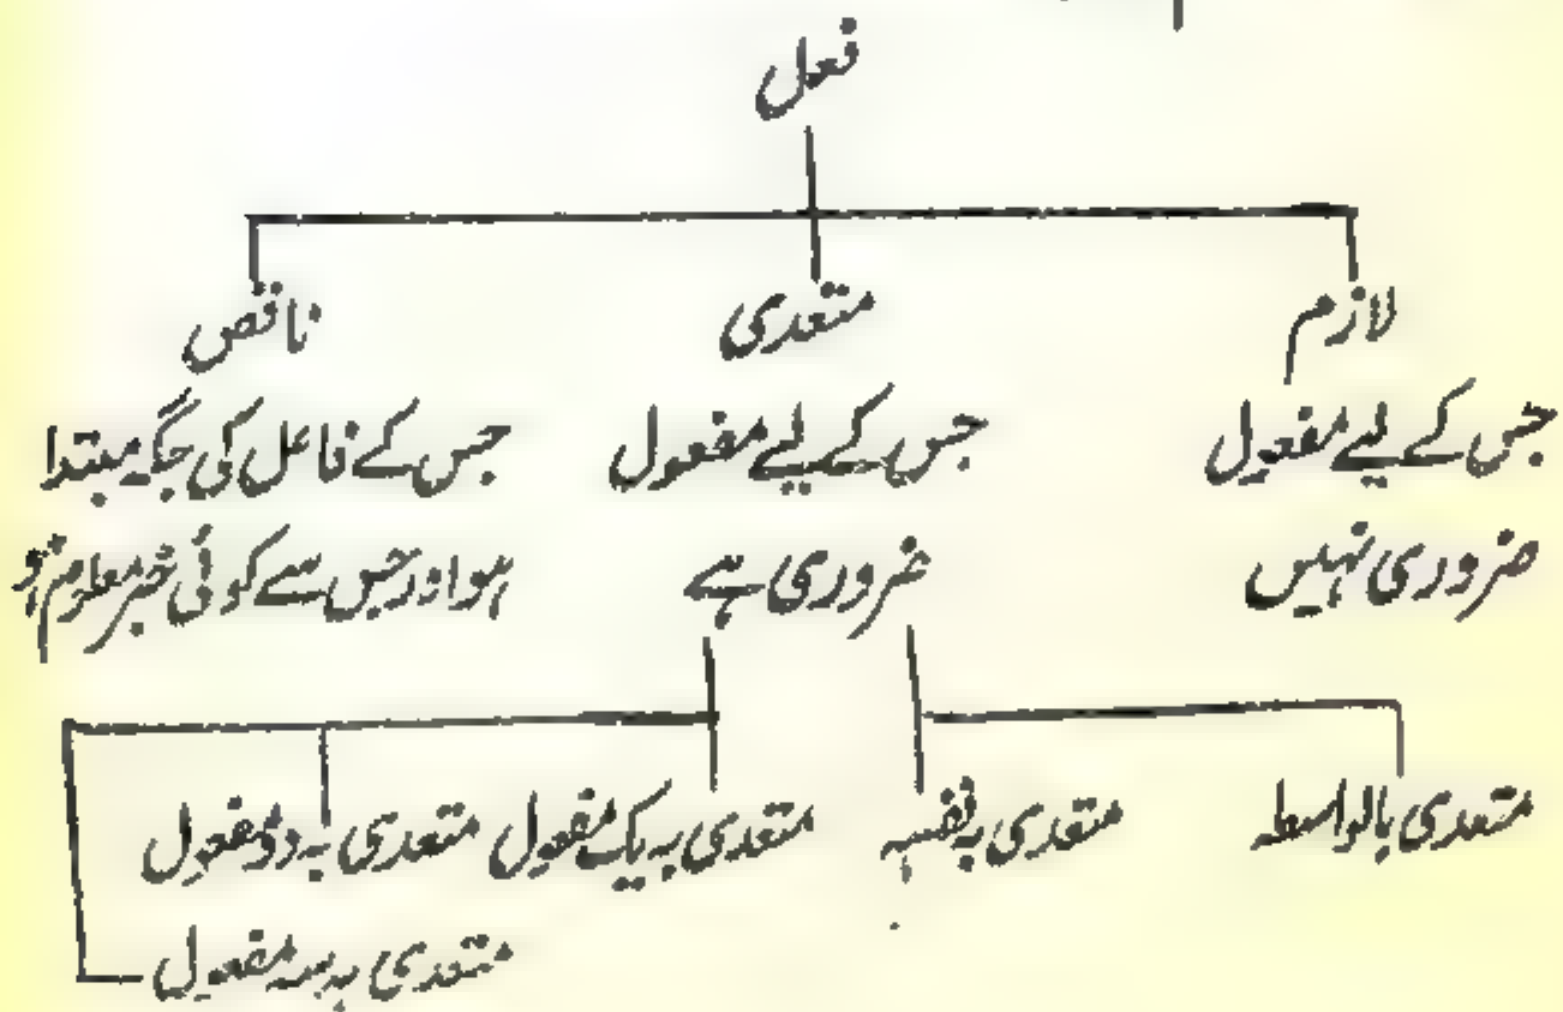 فعل
لازم
متعدی
ناقص
جس کے لیے مفعول
ضروری نہیں
جس کے لیے مفعول
ضروری ہے
جس کے فاعل کی جگہ مبتدا
ہو اور جس سے کوئی خبر معلوم ہو
متعدی بالواسطہ
متعدی بہ نفسہٖ
متعدی بہ یک مفعول
متعدی بہ دو مفعول
متعدی بہ سہ مفعول